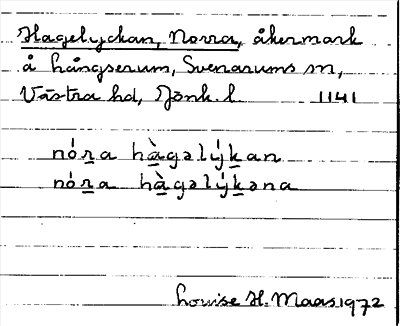 Hagelyckan, Norra, åkermark
å hångserum, Svenarums sn,
Västra hd, Jönk. l. 1141
nó́ṟa hà̱gəlý́ḵan
nó́ṟa hà̱gəlý́ḵəna
Louise H. Maas 1972